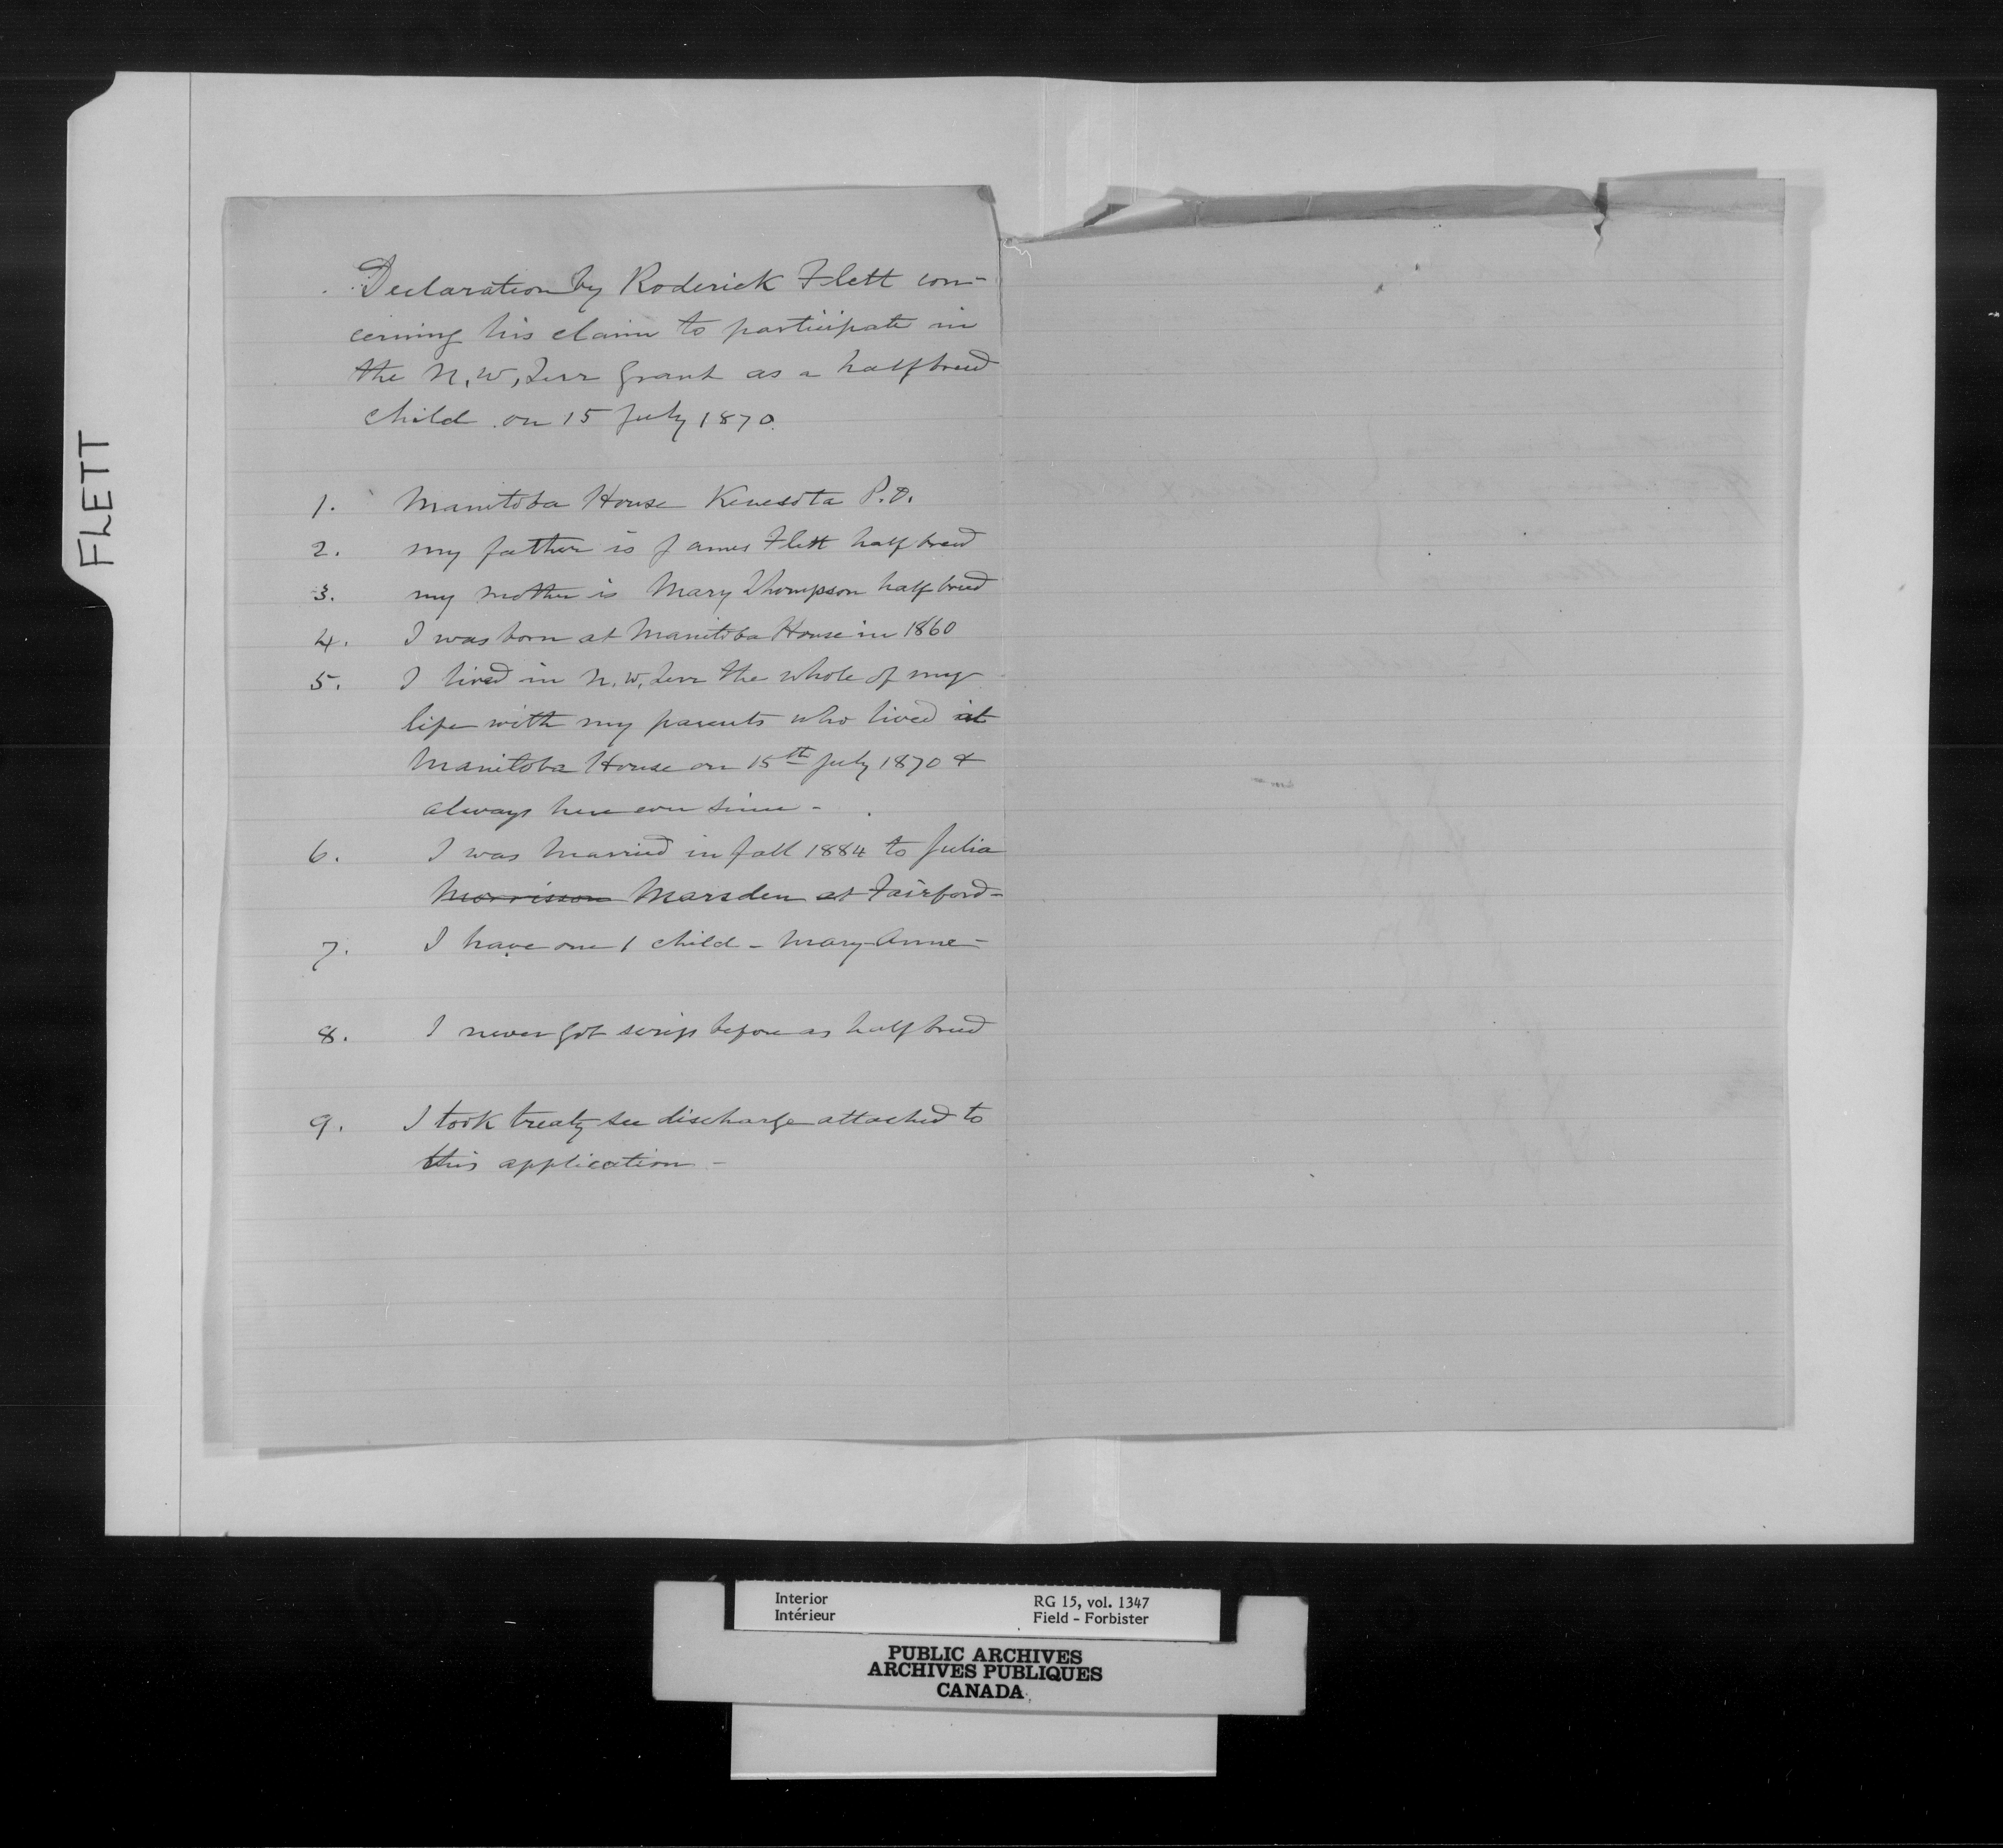 FLETT
Declaration by Roderick Flett con-
cerning his claim to participate in
the N.W, Terr Grant as a halfbreed
child on 15 July 1870.
1. Manitoba House Kenesota P.O.
2. my father is James Flett half breed
3. my mother is Mary Thompson half breed
4. I was born at Manitoba House in 1860
5. I lived in N.W. Terr the whole of my
life with my parents who lived at
Manitoba House on 15th July 1870 &
always here ever since -
6. I was married in fall 1884 to Julia
Morrisson Marsden at Fairford-
7. I have one 1 child - Mary-Anne-
8. I never got scrip before as half breed
9. I took treaty see discharge attached to
this application -
Interior RG 15, vol. 1347
Intérieur Field - Forbister
PUBLIC ARCHIVES
ARCHIVES PUBLIQUES
CANADA